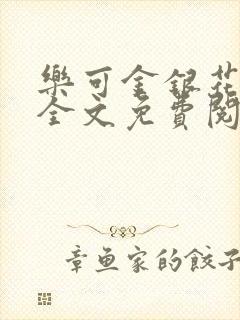 樂可金銀花
全文免費閱
章魚家的餃子